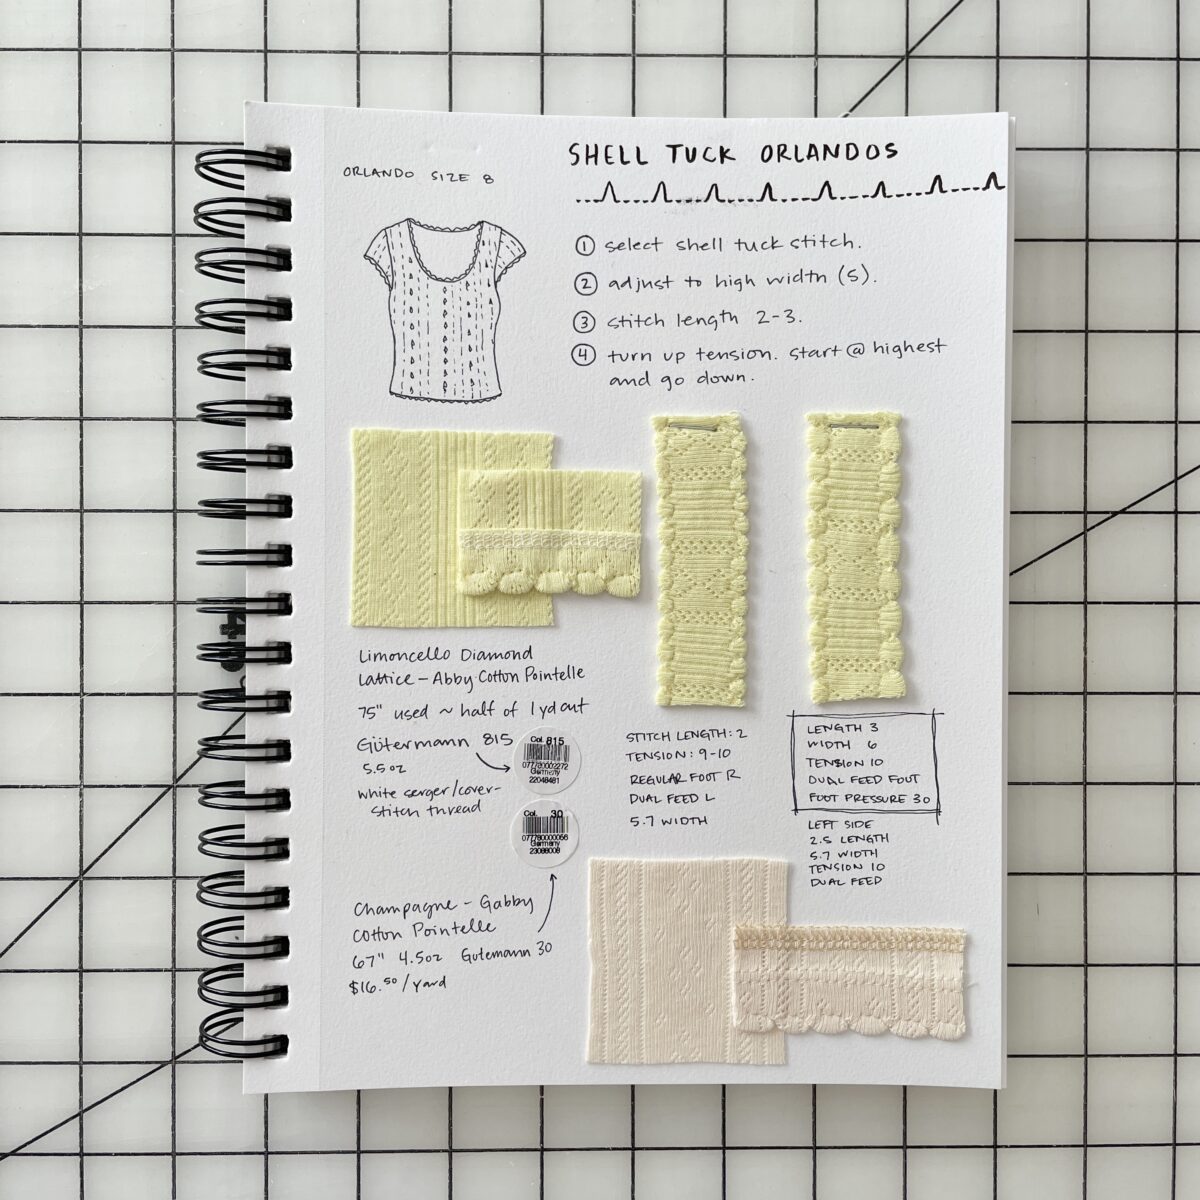 ORLANDO SIZE 8
SHELL TUCK ORLANDOS
① select shell tuck stitch.
② adjust to high width (5).
③ stitch length 2-3.
④ turn up tension. start @ highest
and go down.
Limoncello Diamond
Lattice - Abby Cotton Pointelle
75" used ~ half of 1 yd cut
Gütermann 815
5.5oz
white serger/cover-
stitch thread
Col. 815
077780002272
Germany
22048481
Col. 30
Germany
Champagne - Gabby
Cotton Pointelle
67" 4.5oz Gutemann 30
$16.50/yard
STITCH LENGTH: 2
TENSION: 9-10
REGULAR FOOT R
DUAL FEED L
5.7 WIDTH
LENGTH 3
WIDTH 6
TENSION 10
DUAL FEED FOOT
FOOT PRESSURE 30
LEFT SIDE
2.5 LENGTH
5.7 WIDTH
TENSION 10
DUAL FEED